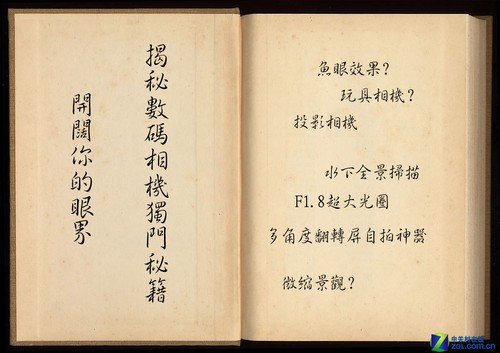 揭秘數碼相機獨門秘籍
開闊你的眼界
魚眼效果?
玩具相機?
投影相機
水下全景掃描
F1.8超大光圈
多角度翻轉屏自拍神器
微缩景觀?
中关村在线
ZOL.COM.CN